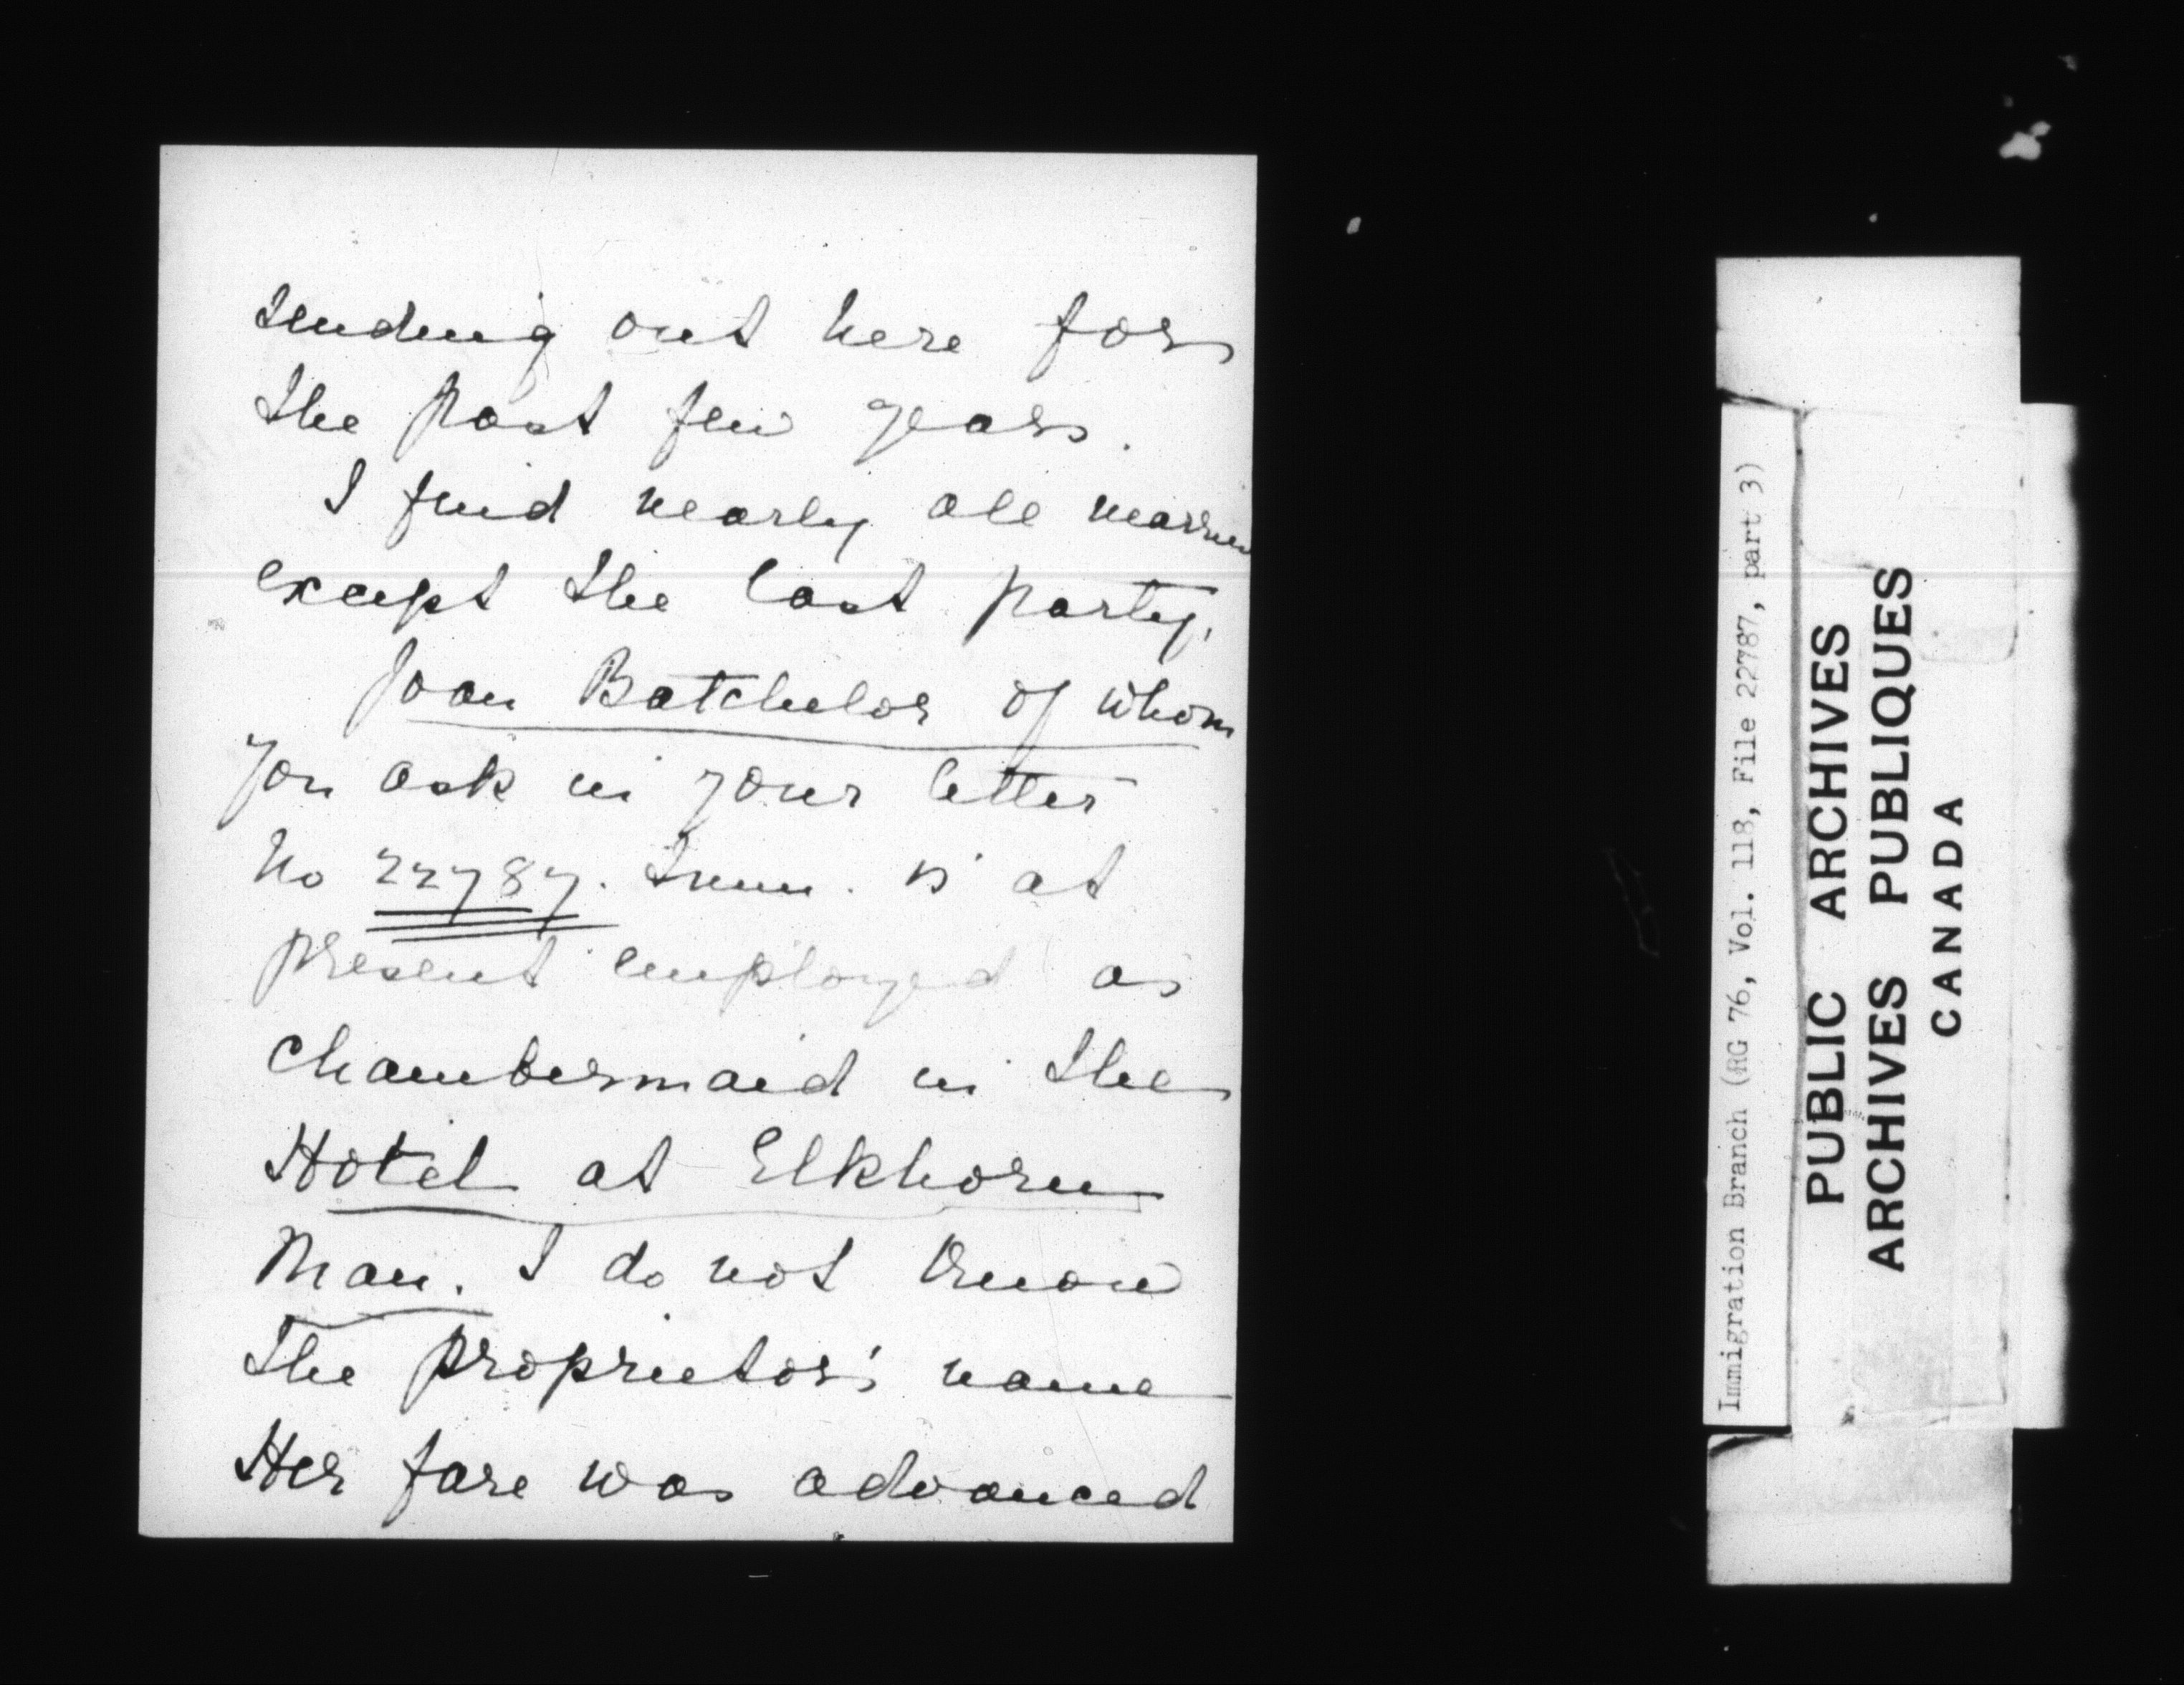 sending out here for
the past few years.
I find nearly all married
except the last party,
Joan Batchelor of whom
you ask in your letter
No 22787. Imm. is at
present employed as
chambermaid in the
Hotel at Elkhorn
Man. I do not know
the proprietor's name
Her fare was advanced
Immigration Branch (RG 76, Vol. 118, File 22787, part 3)
PUBLIC ARCHIVES
ARCHIVES PUBLIQUES
CANADA